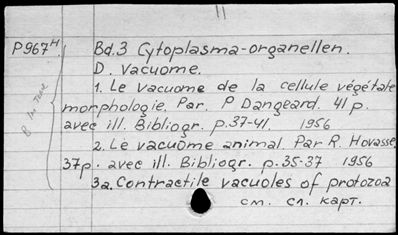 11
P967н
Bd.3 Cytoplasma-organellen.
D. Vacuome.
1. Le vacuome de la cellule végétale
morphologie. Par. P Dangeard. 41 p.
avec ill. Bibliogr. p.37-41. 1956
2. Le vacuome animal. Par R. Hovasse,
37p. avec ill. Bibliogr. p.35-37 1956
3a. Contractile vacuoles of protozoa
см. сл. карт.